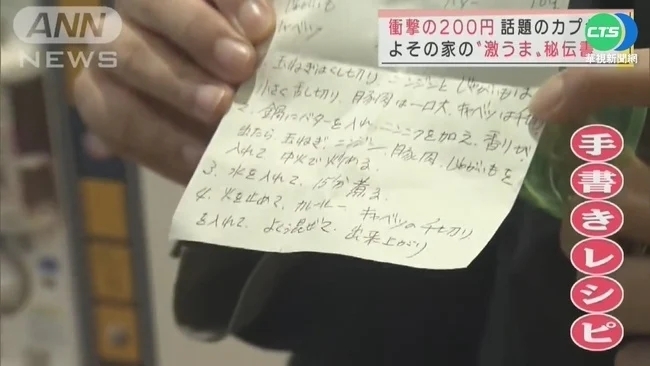 ANN
NEWS
衝撃の200円 話題のカプ
よその家の〝激うま〟秘伝書
CTS
華視新聞網
手書きレシピ
バター 10g
キャベツ
玉ねぎはくし切り、ニンジンと じゃがいもは
小さく 乱切り、豚肉は一口大、キャベツは千切り
2. 鍋にバターを入れ、ニンニクを加え、香りが
出たら、玉ねぎ、ニンジン、豚肉、じゃがいもを
入れて 中火で炒める。
3. 水を入れて、15分煮る。
4. 火を止めて、カレールー、キャベツの千切り
を入れて、よく混ぜて、出来上がり